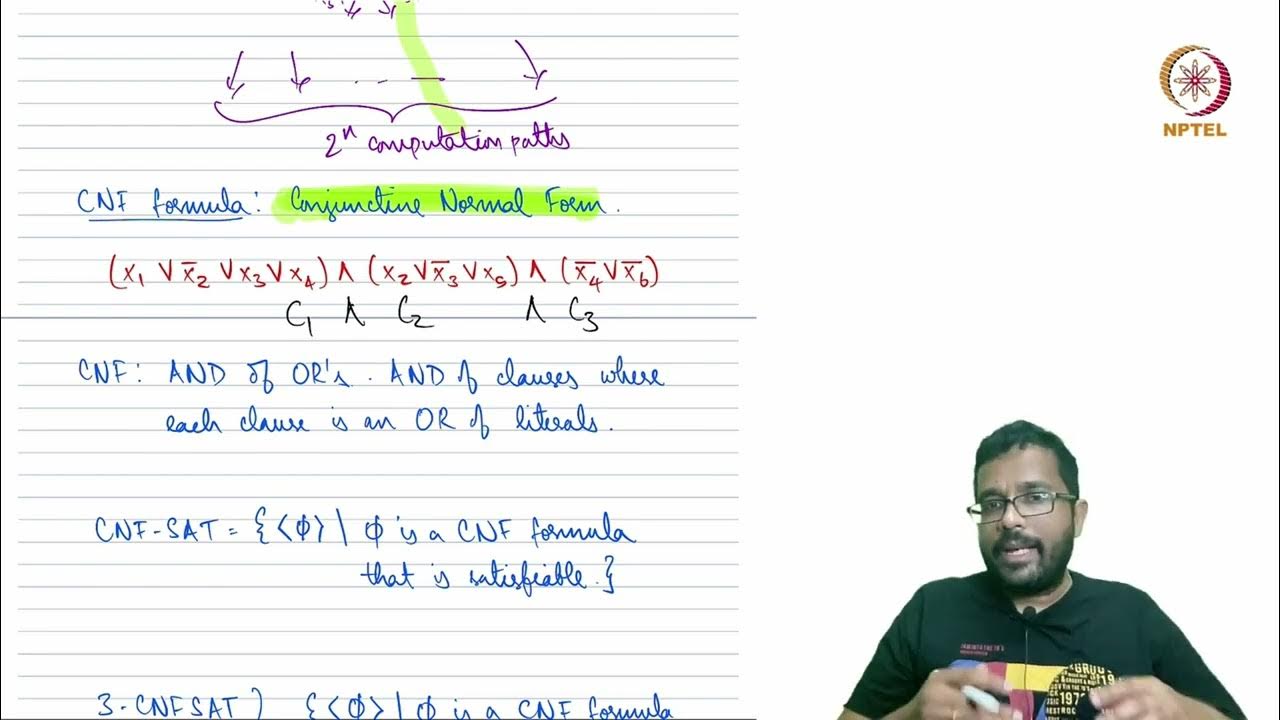 2ⁿ computation paths
NPTEL
CNF formula: Conjunctive Normal Form.
(x₁ ∨ x̅₂ ∨ x₃ ∨ x₄) ∧ (x₂ ∨ x̅₃ ∨ x₅) ∧ (x̅₄ ∨ x̅₆)
C₁ ∧ C₂ ∧ C₃
CNF: AND of OR's. AND of clauses where
each clause is an OR of literals.
CNF-SAT = {<φ> | φ is a CNF formula
that is satisfiable.}
3-CNFSAT) {<φ> | φ is a CNF formula